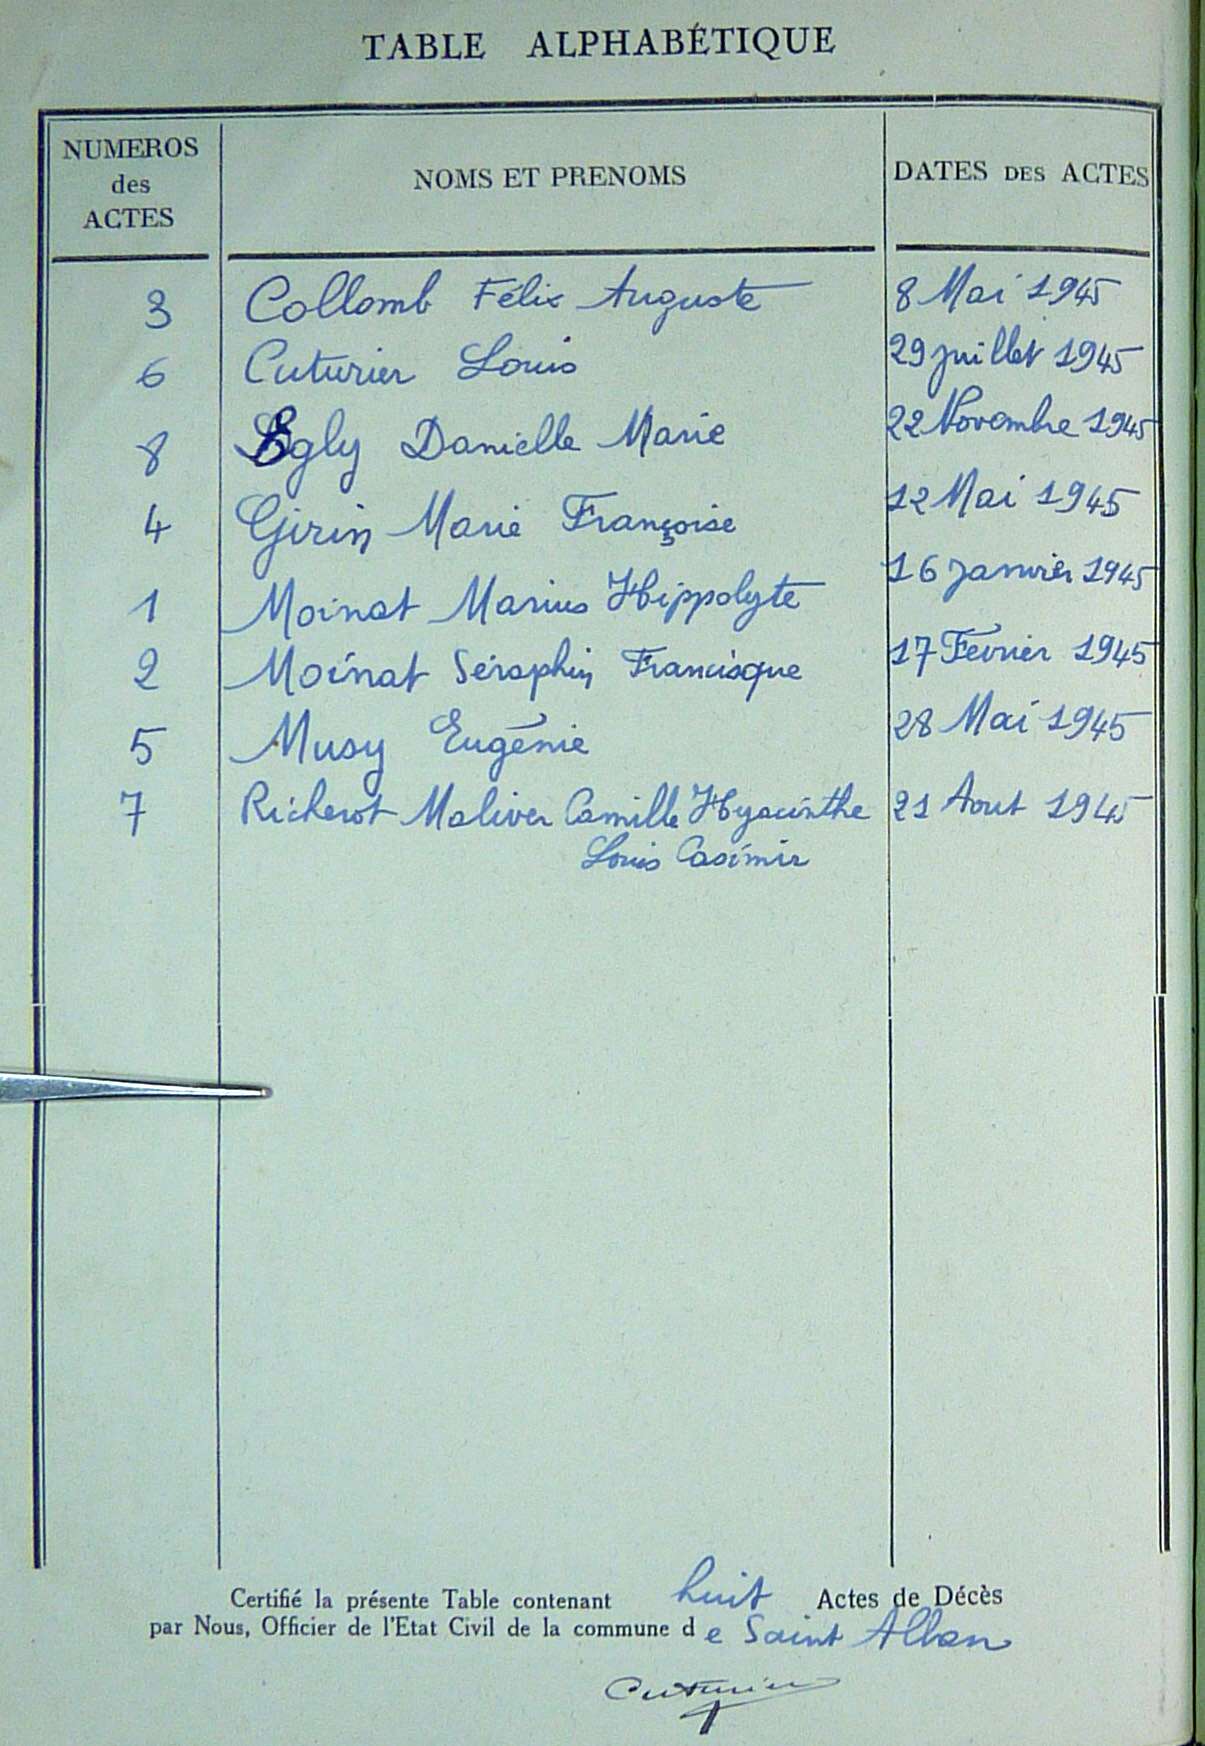 TABLE ALPHABÉTIQUE
NUMEROS
des
ACTES
NOMS ET PRENOMS
DATES DES ACTES
3 Collomb Félix Auguste 8 Mai 1945
6 Cuturier Louis 29 juillet 1945
8 Egly Danielle Marie 22 Novembre 1945
4 Girin Marie Françoise 12 Mai 1945
1 Moinat Marius Hippolyte 16 janvier 1945
2 Moinat Séraphin Francisque 17 Fevrier 1945
5 Musy Eugénie 28 Mai 1945
7 Richerot Maliver Camille Hyacinthe 21 Aout 1945
Louis Casimir
Certifié la présente Table contenant huit Actes de Décès
par Nous, Officier de l'Etat Civil de la commune de Saint Alban
Cuturier